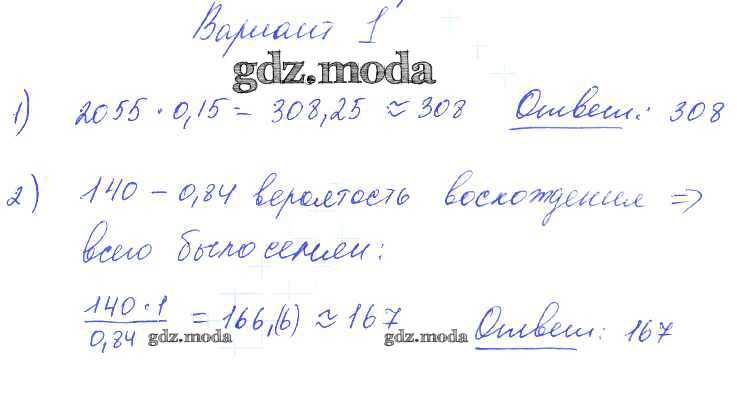 Вариант 1
gdz.moda
1) 2055 · 0,15 = 308,25 ≈ 308 Ответ: 308
2) 140 – 0,84 вероятость восхождения ⇒
всего было семян:
140 · 1 / 0,84 = 166,(6) ≈ 167 Ответ: 167
gdz.moda gdz.moda